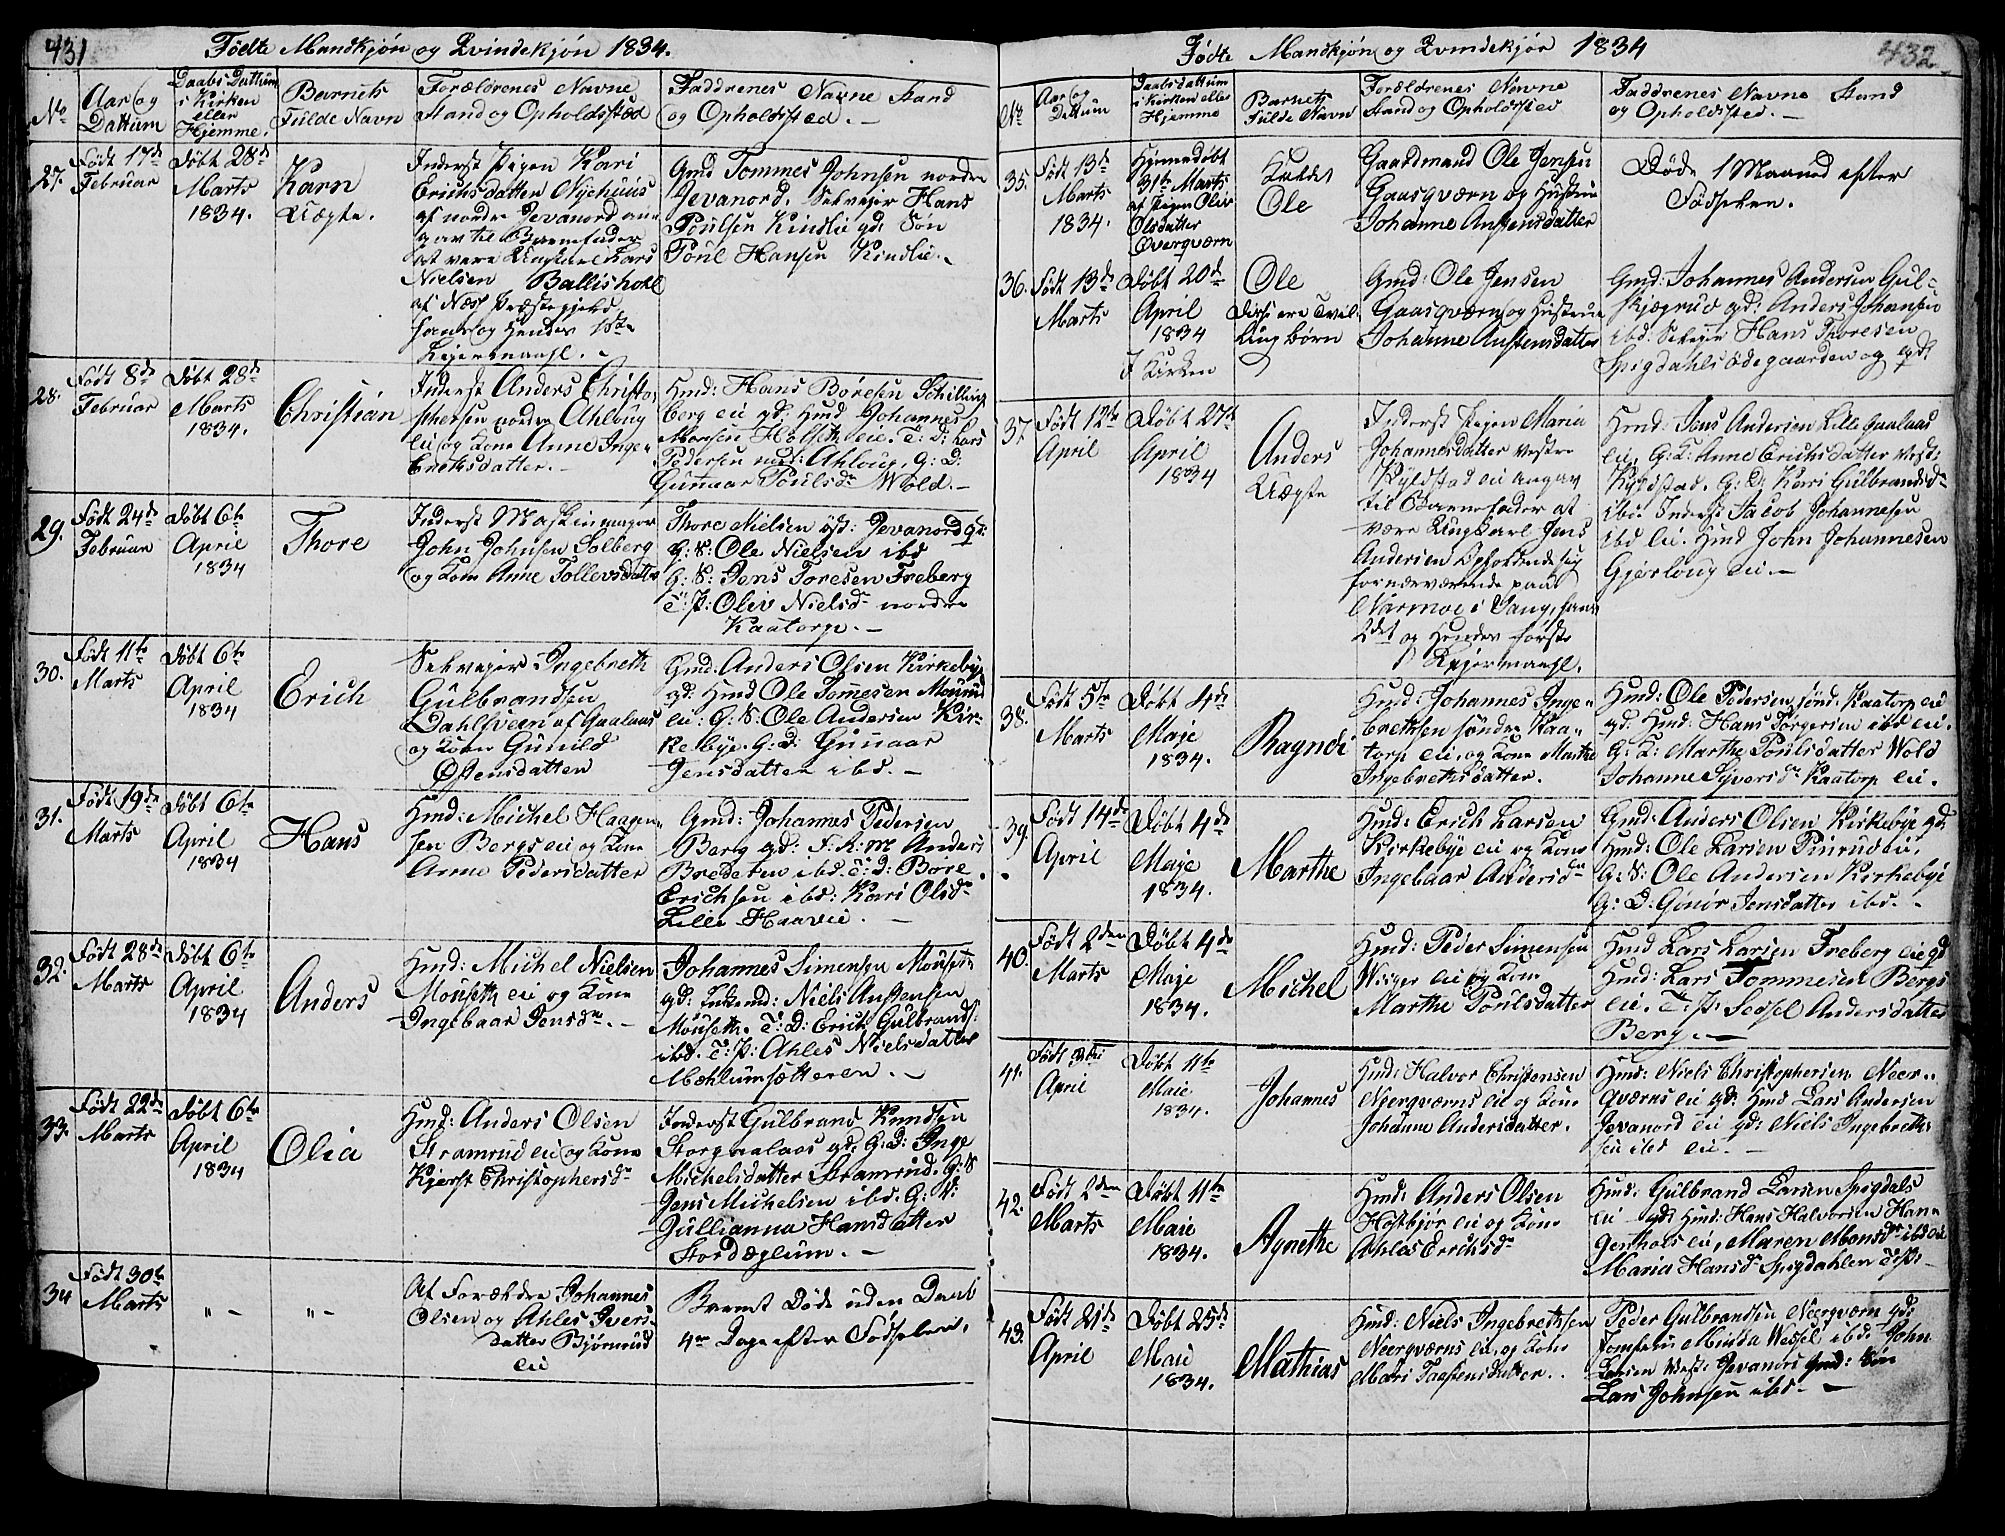 431
Fødte Mandkjøn og Qvindekjøn 1834.
No
Aar og
Dattum
Daabs Dattum
i Kirken
eller
Hjemme.
Barnets
Fulde Navn
Forældrenes Navne
Stand og Opholdssted
Faddrenes Navne Stand
og Opholdssted. -
27.
Født 17de
Februar
Døbt 28de
Marts
1834.
Karn
Uægte.
Inderst Pigen Kari
Erichsdatter Nyehuus
af nordre Jevanord an-
gav til Barnefader
at være Ungkarl Lars
Nielsen Ballishoel
af Næss Præstegjeld
hans og Hendes 1ste
Leiermaahl. -
Gmd Tommes Johnsen nordre
Jevanord. Selveier Hans
Poulsen Kindlie gd: Søn
Poul Hansen Kindlie. -
28.
Født 8de
Februar
Døbt 28de
Marts
1834.
Christian
Inderst Anders Christo-
phersen nordre Ahloug
eie og Kone Anne Inge-
Erichsdatter. -
Hmd: Hans Børesen Schilling
berg eie gd: Hmd Johannes
Monsen Holseth eie. T: D: Lars
Pedersen nord: Ahloug. G: D:
Gunaar Poulsdr Wold. -
29.
Født 24de
Februar
Døbt 6te
April
1834
Thore
Inderst Maskinmager
John Johnsen Solberg
og Kone Anne Tollevsdatter
Thore Nielsen øst: Jevanord gd:
G: S: Ole Nielsen ibd
G: S: Jens Toresen Freberg
T: P: Oliv Nielsdr nordre
Kaatorp. -
30.
Født 11te
Marts
Døbt 6te
April
1834
Erich
Selveier Ingebreth
Gulbrandsen
Dahlsveen af Gaalaas
og Kone Gunild
Østensdatter
Gmd: Anders Olsen Kirkebye
gd: Hmd Ole Tomesen Mourud
eie: G: S: Ole Andersen Kir-
kebye. G: D: Gunaar
Jensdatter ibd. -
31.
Født 19de
Marts
Døbt 6te
April
1834
Hans
Hmd: Michel Haagen-
sen Bergs eie og Kone
Anne Pedersdatter
Gmd: Johannes Pedersen
Berg gd: F: K: M Anders
Bredesen ibd. T: D: Børe
Erichsen ibd: Kari Olsdr
Lille Haavie. -
32.
Født 28de
Marts
Døbt 6te
April
1834
Anders
Hmd: Michel Nielsen
Mouseth eie og Kone
Ingebaar Jensdr. -
Johannes Simensen Mouset
gd: Niels Anstensen
Mouseth. T: D: Erich Gulbrands:
ibd. T: P: Ahles Nielsdatter
Mæhlumsætteren. -
33.
Født 22de
Marts
Døbt 6te
April
1834
Olia
Hmd: Anders Olsen
Stramrud eie og Kone
Kjerst Christophersdr
Inderst Gulbrand Knudsen
Storgaalaas gd: G: D: Inge
Michelsdatter Stramrud. G: S
Jens Michelsen ibd. G: K:
Jullianna Hansdatter
Stordæglum. -
34
Født 30te
Marts
" -
" -
Af Forældre Johannes
Olsen og Ahles Ivers-
datter Bjørnerud
eie
Barnet Døde uden Daab
4re Dage efter Fødselen.
432
Fødte Mandkjøn og Qvindekjøn 1834
No
Aar og
Dattum
Daabsdattum
i Kirken eller
Hjemme
Barnets
Fulde Navn
Forældrenes Navne
Stand og Opholdssted
Faddrenes Navne Stand
og Opholdssted. -
35.
Født 13de
Marts
1834.
Hjemmedøbt
31te Marts
af Pigen Oliv
Olsdatter
Overqværn
Kaldet
Ole
Gaardmand Ole Jensen
Gaasqværn og Hustrue
Johanne Anstensdatter
Døde 1 Maaned efter
Fødselen.
36.
Født 13de
Marts
Døbt 20de
April
1834
I Kirken
Ole
Disse ere Tvil-
ling børn
Gmd: Ole Jensen
Gaasqværn og Hustrue
Johanne Anstensdatter
Gmd: Johannes Andersen Gul-
skjøgrud gd: Anders Johansen
ibd. Selveier Hans Thoresen
Spigdahls ødegaarden og gd:
37.
Født 12te
April
Døbt 27de
April
1834
Anders
Uægte
Inderst Pigen Maria
Johannesdatter Vestre
Kyldstad eie angav
til Barnefader at
være Ungkarl Jens
Andersen Opholdende sig
fornærværende paa
Narmoe i Vang, hans
2det og Hendes første
Leiermaahl.
Hmd: Jens Andersen Lille Gaalaas
eie, G: K: Anne Erichsdatter Vest:
Kyldstad. G: D: Kari Gulbrandsdr
ibd: Inderst Jacob Johannesen
ibd eie. Hmd John Johannesen
Gjerloug eie. -
38.
Født 5te
Marts
Døbt 4de
Maje
1834.
Ragndi
Hmd: Johannes Inge-
brethsen søndre Kaa-
torp eie, og Kone Marthe
Ingebrethsdatter.
Hmd: Ole Pedersen sønd: Kaatorp eie
gd: Hmd: Hans Torgersen ibd eie.
G: K: Marthe Poulsdatter Wold
Johanne Syversdr Kaatorp eie.
39.
Født 14de
April
Døbt 4de
Maje
1834.
Marthe
Hmd: Erich Larsen
Kirkebye eie og Kone
Ingebaar Andersdr
Gmd: Anders Olsen Kirkebye gd:
Hmd: Ole Larsen Pinrud eie.
G: S: Ole Andersen Kirkebye
G: D: Gunør Jensdatter ibd. -
40.
Født 2den
Marts
Døbt 4de
Maje
1834.
Michel
Hmd: Peder Simensen
Wisger eie og Kone
Marthe Poulsdatter
Hmd Lars Larsen Freberg eie gd
Hmd: Lars Tommesen Bergs
eie. T: P: Sedsel Andersdatter
Berg. -
41.
Født 3die
April
Døbt 11te
Maie
1834.
Johannes
Hmd: Halvor Christensen
Neerqværns eie og Kone
Johanne Andersdatter.
Hmd: Niels Christophersen Neer-
qværns eie gd: Hmd Lars Andersen
Jevanord eie gd: Niels Ingebreth-
sen ibd eie. -
42.
Født 2den
Marts
Døbt 11te
Maie
1834.
Agnethe
Hmd: Anders Olsen
Hostbjør eie og Kone
Ahles Erichsdr
Hmd: Gulbrand Larsen Spigdals
eie gd: Hmd: Hans Halvorsen Hane
Maren Monsdr ibd eie
Maria Hansdr Spigdahlen
43.
Født 21de
April
Døbt 25de
Maie
1834.
Mathias
Hmd: Niels Ingebrethsen
Neerqværns eie, og Kone
Mari Torstensdatter. .
Peder Gulbrandsen Neerqværn gd:
Jomfrue Wessel ibd: John
Larsen Vest: Jevanord Gmd: Søn
Lars Johnsen ibd. -